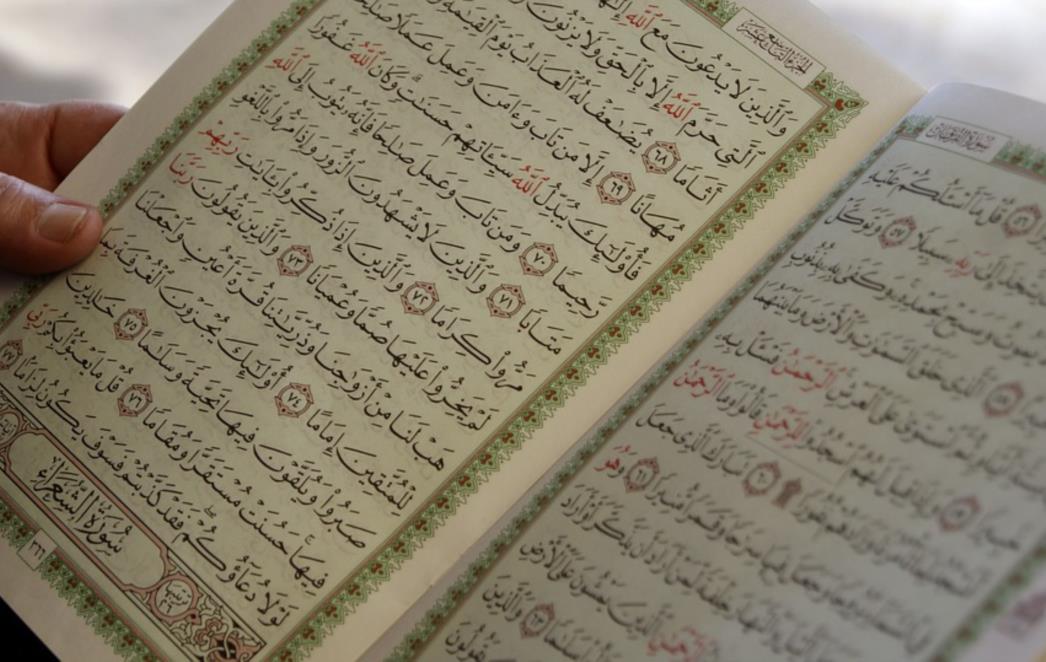 سورة الفرقان
٥٦ قُلْ مَآ أَسْـَٔلُكُمْ عَلَيْهِ
يَتَّخِذَ إِلَىٰ رَبِّهِۦ سَبِيلًا ٥٧ وَتَوَكَّلْ
يَمُوتُ وَسَبِّحْ بِحَمْدِهِۦ وَكَفَىٰ بِهِۦ بِذُنُوبِ
٥٨ ٱلَّذِى خَلَقَ ٱلسَّمَـٰوَٰتِ وَٱلْأَرْضَ وَمَا بَيْنَهُمَا
ثُمَّ ٱسْتَوَىٰ عَلَى ٱلْعَرْشِ ٱلرَّحْمَـٰنُ فَسْـَٔلْ بِهِۦ
خَبِيرًا ٥٩ وَإِذَا قِيلَ لَهُمُ ٱسْجُدُوا۟ لِلرَّحْمَـٰنِ قَالُوا۟ وَمَا ٱلرَّحْمَـٰنُ
أَنَسْجُدُ لِمَا تَأْمُرُنَا وَزَادَهُمْ نُفُورًا ۩ ٦٠ تَبَارَكَ ٱلَّذِى جَعَلَ
وَجَعَلَ فِيهَا سِرَٰجًا وَقَمَرًا مُّنِيرًا ٦١ وَهُوَ
ٱلَّيْلَ وَٱلنَّهَارَ خِلْفَةً لِّمَنْ أَرَادَ أَن يَذَّكَّرَ أَوْ أَرَادَ
ٱلرَّحْمَـٰنِ ٱلَّذِينَ يَمْشُونَ عَلَى ٱلْأَرْضِ
سَلَـٰمًا ٦٣ وَٱلَّذِينَ
يَقُولُونَ
الجزء التاسع عشر
وَٱلَّذِينَ لَا يَدْعُونَ مَعَ ٱللَّهِ إِلَـٰهًا
ٱلَّتِى حَرَّمَ ٱللَّهُ إِلَّا بِٱلْحَقِّ وَلَا يَزْنُونَ
أَثَامًا ٦٨ يُضَـٰعَفْ لَهُ ٱلْعَذَابُ يَوْمَ ٱلْقِيَـٰمَةِ
مُهَانًا ٦٩ إِلَّا مَن تَابَ وَءَامَنَ وَعَمِلَ عَمَلًا صَـٰلِحًا
فَأُو۟لَـٰٓئِكَ يُبَدِّلُ ٱللَّهُ سَيِّـَٔاتِهِمْ حَسَنَـٰتٍ وَكَانَ ٱللَّهُ غَفُورًا
رَّحِيمًا ٧٠ وَمَن تَابَ وَعَمِلَ صَـٰلِحًا فَإِنَّهُۥ يَتُوبُ إِلَى ٱللَّهِ
مَتَابًا ٧١ وَٱلَّذِينَ لَا يَشْهَدُونَ ٱلزُّورَ وَإِذَا مَرُّوا۟ بِٱللَّغْوِ
مَرُّوا۟ كِرَامًا ٧٢ وَٱلَّذِينَ إِذَا ذُكِّرُوا۟ بِـَٔايَـٰتِ رَبِّهِمْ
لَمْ يَخِرُّوا۟ عَلَيْهَا صُمًّا وَعُمْيَانًا ٧٣ وَٱلَّذِينَ يَقُولُونَ رَبَّنَا
هَبْ لَنَا مِنْ أَزْوَٰجِنَا وَذُرِّيَّـٰتِنَا قُرَّةَ أَعْيُنٍ وَٱجْعَلْنَا
لِلْمُتَّقِينَ إِمَامًا ٧٤ أُو۟لَـٰٓئِكَ يُجْزَوْنَ ٱلْغُرْفَةَ بِمَا
صَبَرُوا۟ وَيُلَقَّوْنَ فِيهَا تَحِيَّةً وَسَلَـٰمًا ٧٥ خَـٰلِدِينَ
فِيهَا حَسُنَتْ مُسْتَقَرًّا وَمُقَامًا ٧٦ قُلْ مَا يَعْبَؤُا۟ بِكُمْ رَبِّى
لَوْلَا دُعَآؤُكُمْ فَقَدْ كَذَّبْتُمْ فَسَوْفَ يَكُونُ لِزَامًا ٧٧
سُورَةُ الشُّعَرَاءِ
٣٦٦